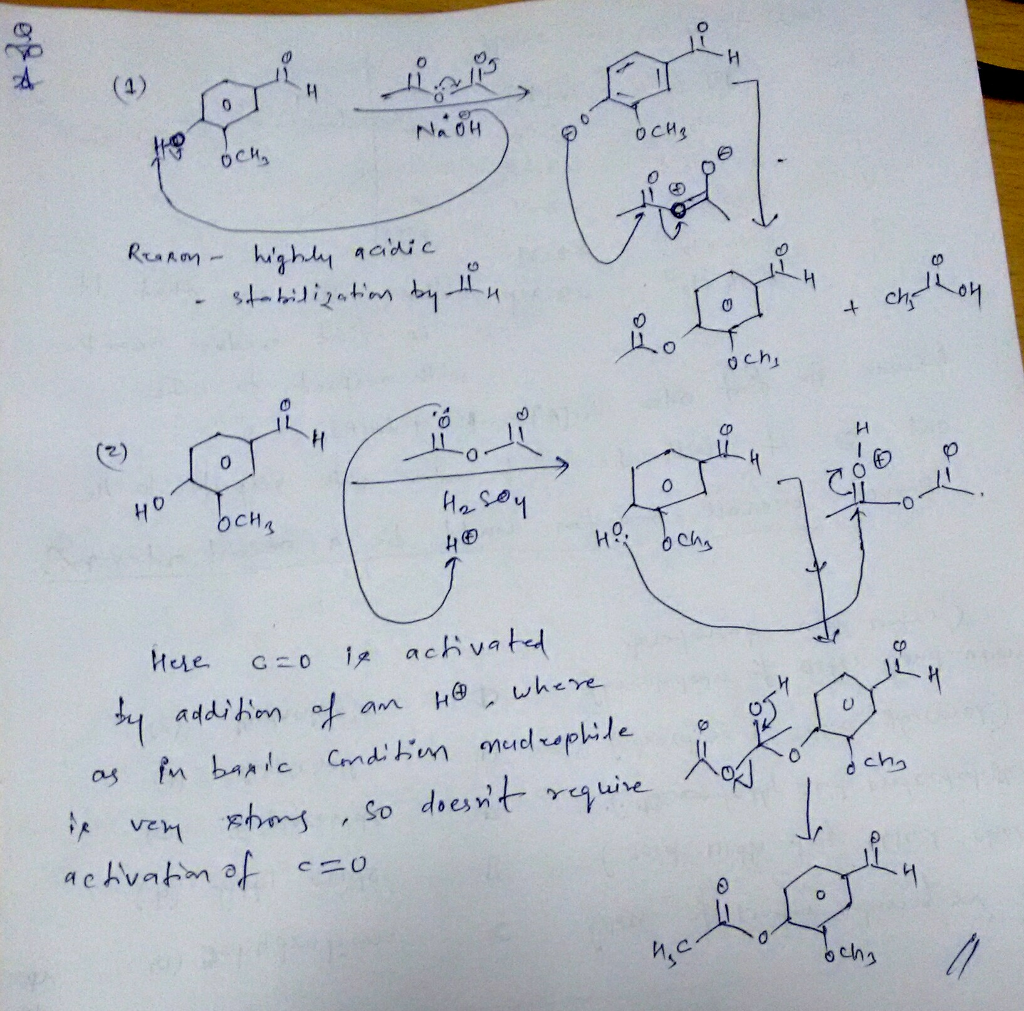 (1)
O
H
HO
OCH3
O O
O
Na+ OH⊖
O
H
O
⊖
OCH3
O
⊕
O
O⊖
Reason - highly acidic
- stabilization by O H
O
H
O
O
OCH3
+
CH3
O
OH
(2)
O
H
HO
OCH3
O O
O
H2SO4
H⊕
O
H
HO
OCH3
H
O⊕
O
O
Here C=O is activated
by addition of an H⊕, where
as in basic condition nucleophile
is very strong, so doesn't require
activation of C=O
OH
O
O
O
O
H
OCH3
O
H3C
O
O
H
OCH3